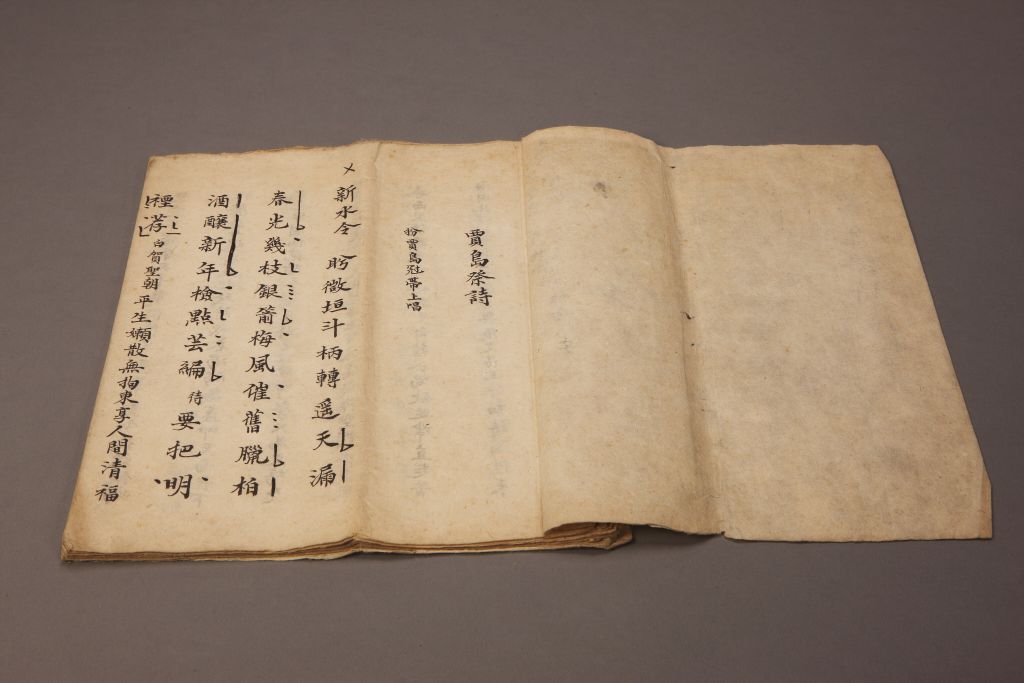 賈島祭詩
扮賈島冠帶上唱
新水令 盻微垣斗柄轉遥天漏
春光幾枝銀箭梅風催舊臘柏
酒釀新年檢點芸編待要把明
禋荐 白賀聖朝 平生嬾散無拘束享人間清福